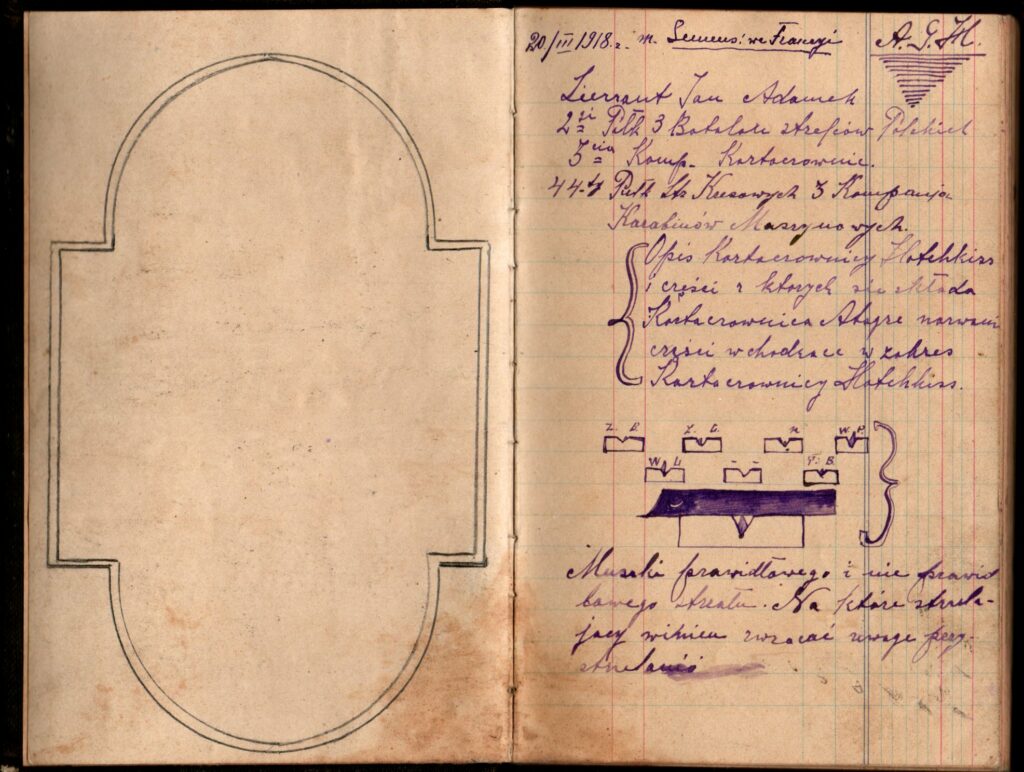 20/III 1918.r. m. we Francyi
A. G. H.
Sierrant Jan Adamek
2gi Pułk 3 Batalion strzelców Polskich
3cia Komp. Kartaczownic.
44-ty Pułk Kresowych 3 Kompanja
Karabinów Maszynowych.
Opis Kartaczownicy Hotchkiss
i części z ktorych się składa
Kartaczownica nazwani
części wchodzące w zakres
Kartaczownicy Hotchkiss.
Z. L. n W. P.
W L - - P. B.
Muszki prawidłowego i nie prawid
łowego strzału. Na które strzela-
jący winien zwracać uwagę przy-
strzelanió